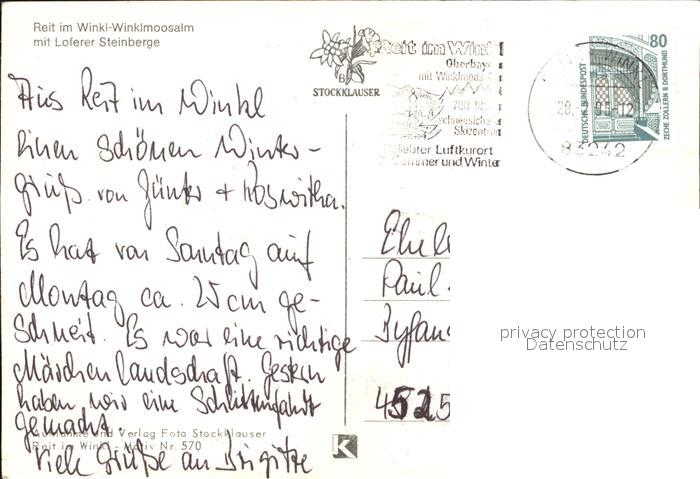 Reit im Winkl-Winklmoosalm
mit Loferer Steinberge
STOCKKLAUSER
Reit im Wink
Oberbay
mit Winklmoos
700
schneesicher
Skizentrum
Beliebter Luftkurort
Sommer und Winter
83242
DEUTSCHE BUNDESPOST
80
ZECHE ZOLLERN II DORTMUND
Aus Reit im Winkl
Einen schönen Winter-
gruß von Günter + Roswitha.
Es hat von Sonntag auf
Montag ca. 25 cm ge-
schneit. Es war eine richtige
Märchenlandschaft. Gestern
haben wir eine Schlittenfahrt
gemacht.
Viele Grüße an Brigitte
Aufnahme und Verlag Foto Stockklauser
Reit im Winkl - Motiv Nr. 570
K
Paul
4525
privacy protection
Datenschutz